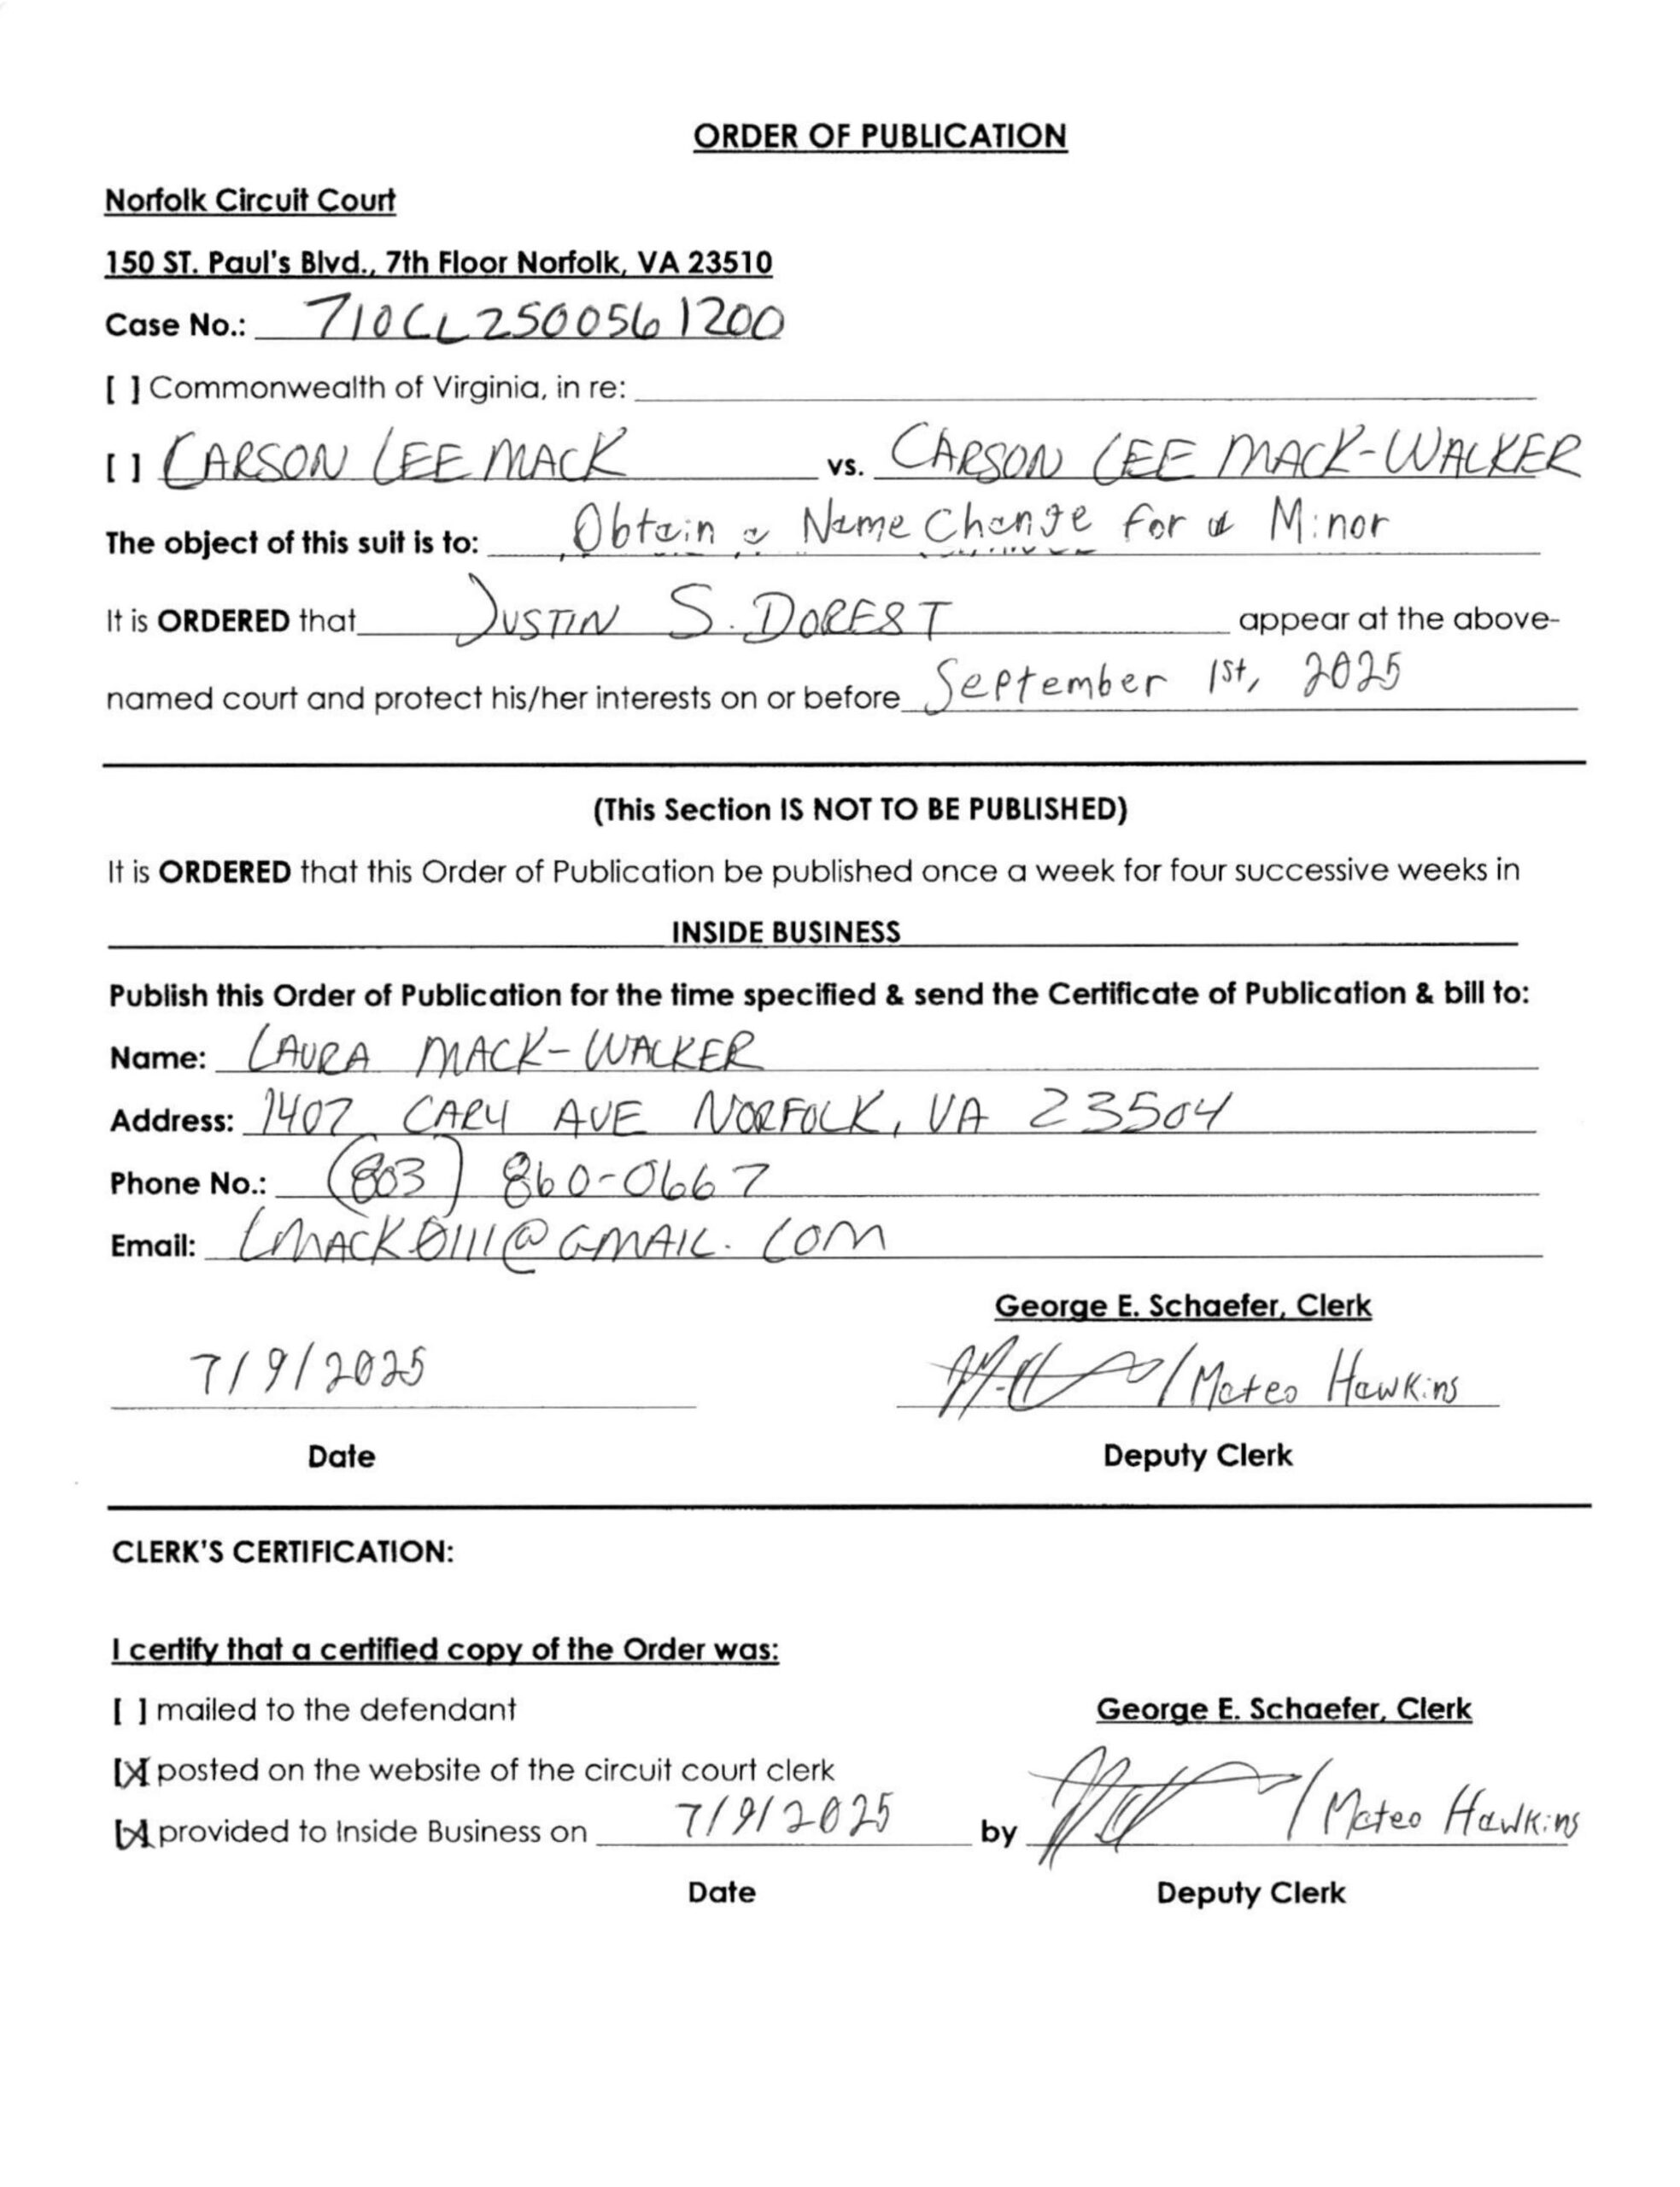 ORDER OF PUBLICATION
Norfolk Circuit Court
150 ST. Paul's Blvd., 7th Floor Norfolk, VA 23510
Case No.: 710CL2500561200
[ ] Commonwealth of Virginia, in re:
[ ] CARSON LEE MACK vs. CARSON LEE MACK-WALKER
The object of this suit is to: Obtain a Name Change for a Minor
It is ORDERED that JUSTIN S. DOREST appear at the above-
named court and protect his/her interests on or before September 1st, 2025
(This Section IS NOT TO BE PUBLISHED)
It is ORDERED that this Order of Publication be published once a week for four successive weeks in
INSIDE BUSINESS
Publish this Order of Publication for the time specified & send the Certificate of Publication & bill to:
Name: LAURA MACK-WALKER
Address: 1407 CARY AVE NORFOLK, VA 23504
Phone No.: (803) 860-0667
Email: LMACK0111@GMAIL.COM
George E. Schaefer, Clerk
7/9/2025 /Mateo Hawkins
Date Deputy Clerk
CLERK'S CERTIFICATION:
I certify that a certified copy of the Order was:
[ ] mailed to the defendant George E. Schaefer, Clerk
[X] posted on the website of the circuit court clerk
[X] provided to Inside Business on 7/9/2025 by /Mateo Hawkins
Date Deputy Clerk